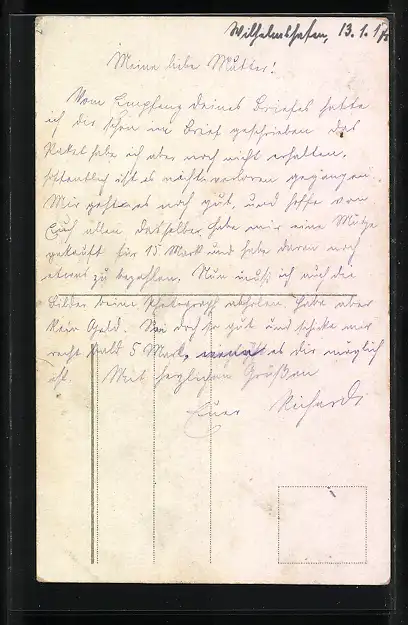 Wilhelmshafen, 13.1.17
Meine liebe Mutter!
Vom Empfang deines Briefes hatte
ich dir schon im Brief geschrieben das
Paket habe ich aber noch nicht erhalten.
hoffentlich ist es nicht verloren gegangen.
Mir geht es noch gut, und hoffe von
Euch allen dasselbe, habe mir eine Mütze
gekauft für 15 Mark und habe daran noch
etwas zu bezahlen. Nun muß ich auch die
Bilder beim Photograph abholen, habe aber
kein Geld. Sei doch so gut und schicke mir
recht bald 5 Mark, es dir möglich
ist. Mit herzlichen Grüßen
Euer Richard